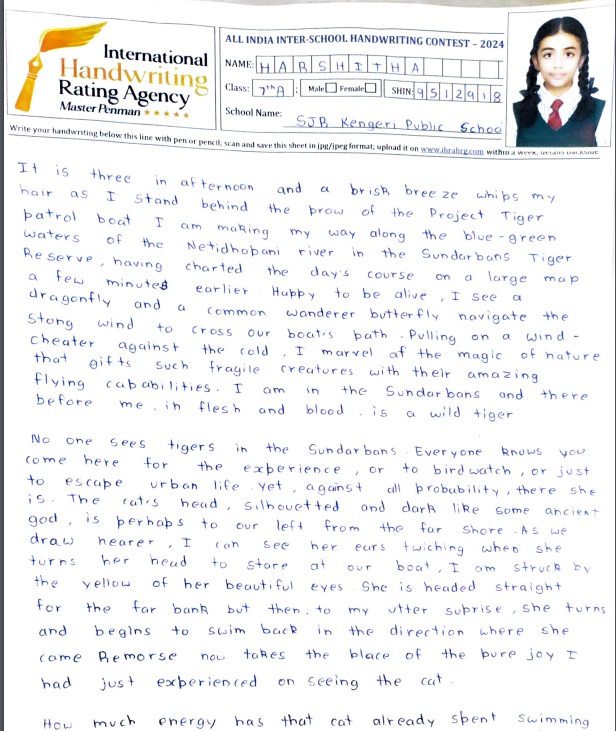 International
Handwriting
Rating Agency
Master Penman ★★★★★
ALL INDIA INTER-SCHOOL HANDWRITING CONTEST – 2024
NAME: HARSHITHA
Class: 7thA Male Female SHIN: 9512918
School Name: SJR Kengeri Public Schoo
Write your handwriting below this line with pen or pencil; scan and save this sheet in jpg/jpeg format; upload it on www.ihrahrg.com within a week, details backside
It is three in afternoon and a brisk breeze whips my
hair as I stand behind the prow of the Project Tiger
patrol boat I am making my way along the blue-green
waters of the Netidhopani river in the Sundarbans Tiger
Reserve, having charted the day's course on a large map
a few minutes earlier. Happy to be alive, I see a
dragonfly and a common wanderer butterfly navigate the
stong wind to cross our boat's path. Pulling on a wind-
cheater against the cold, I marvel af the magic of nature
that gifts such fragile creatures with their amazing
flying capabilities. I am in the Sundarbans and there
before me, in flesh and blood, is a wild tiger
No one sees tigers in the Sundarbans. Everyone knows you
come here for the experience, or to birdwatch, or just
to escape urban life. yet, against all probability, there she
is. The cat's head, silhouetted and dark like some ancient
god, is perhaps to our left from the far shore. As we
draw nearer, I can see her ears twiching when she
turns her head to stare at our boat, I am struck by
the yellow of her beautiful eyes. She is headed straight
for the far bank but then, to my utter suprise, she turns
and begins to swim back in the direction where she
came Remorse now takes the blace of the bure joy I
had just experienced on seeing the cat.
How much energy has that cat already spent swimming